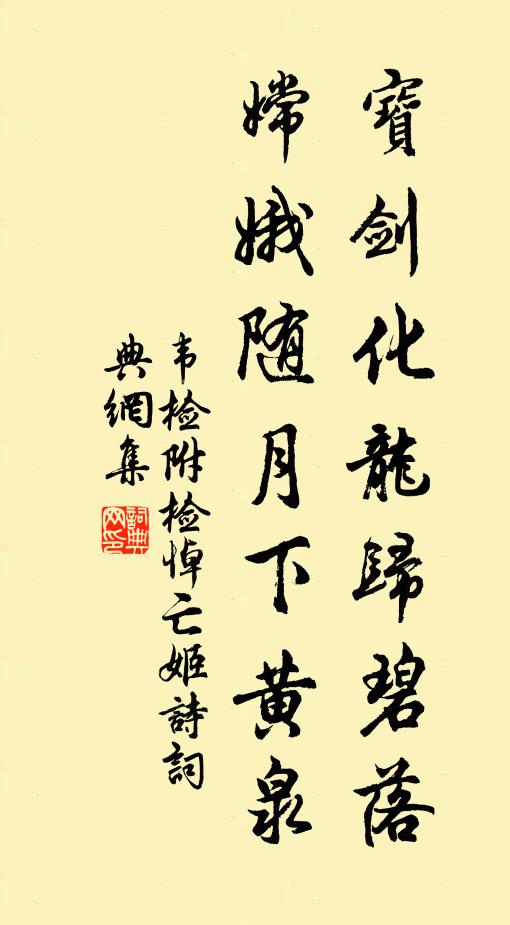 寶劍化龍歸碧落
嫦娥随月下黄泉
韦檢附檢悼亡姬詩詞
典網集
詞典網印